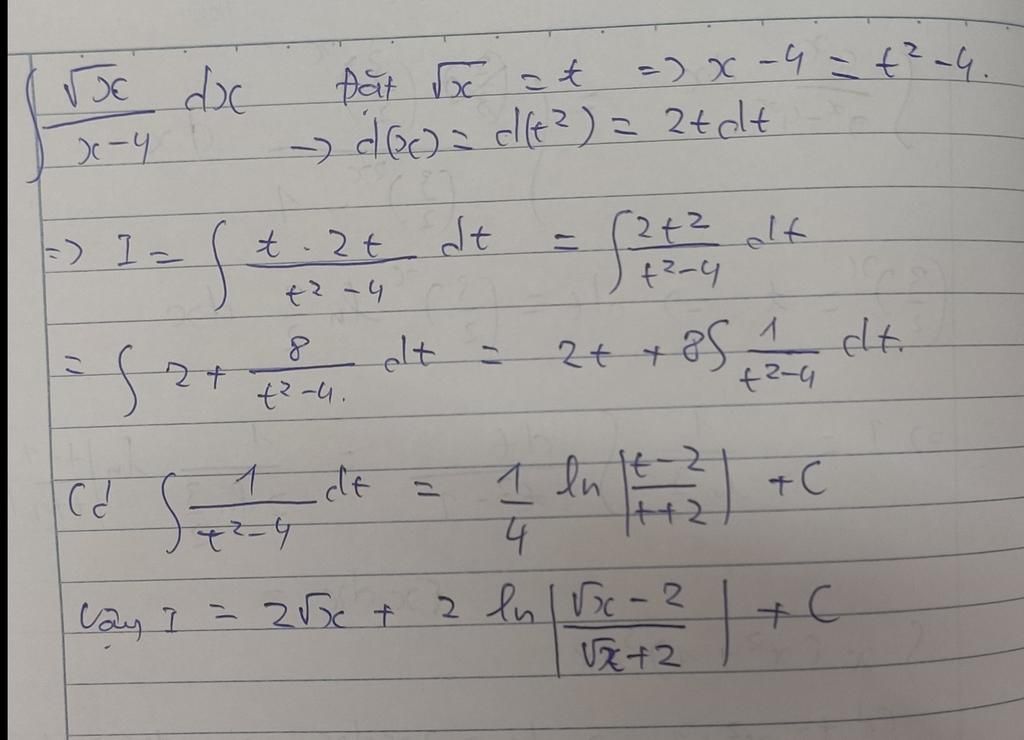 ∫ √x / (x-4) dx Đặt √x = t => x - 4 = t² - 4.
→ d(x) = d(t²) = 2tdt
=> I = ∫ (t . 2t) / (t² - 4) dt = ∫ 2t² / (t² - 4) dt
= ∫ 2 + 8 / (t² - 4.) dt = 2t + 8∫ 1 / (t² - 4) dt.
Có ∫ 1 / (t² - 4) dt = 1/4 ln |(t - 2) / (t + 2)| + C
Vậy I = 2√x + 2 ln |(√x - 2) / (√x + 2)| + C